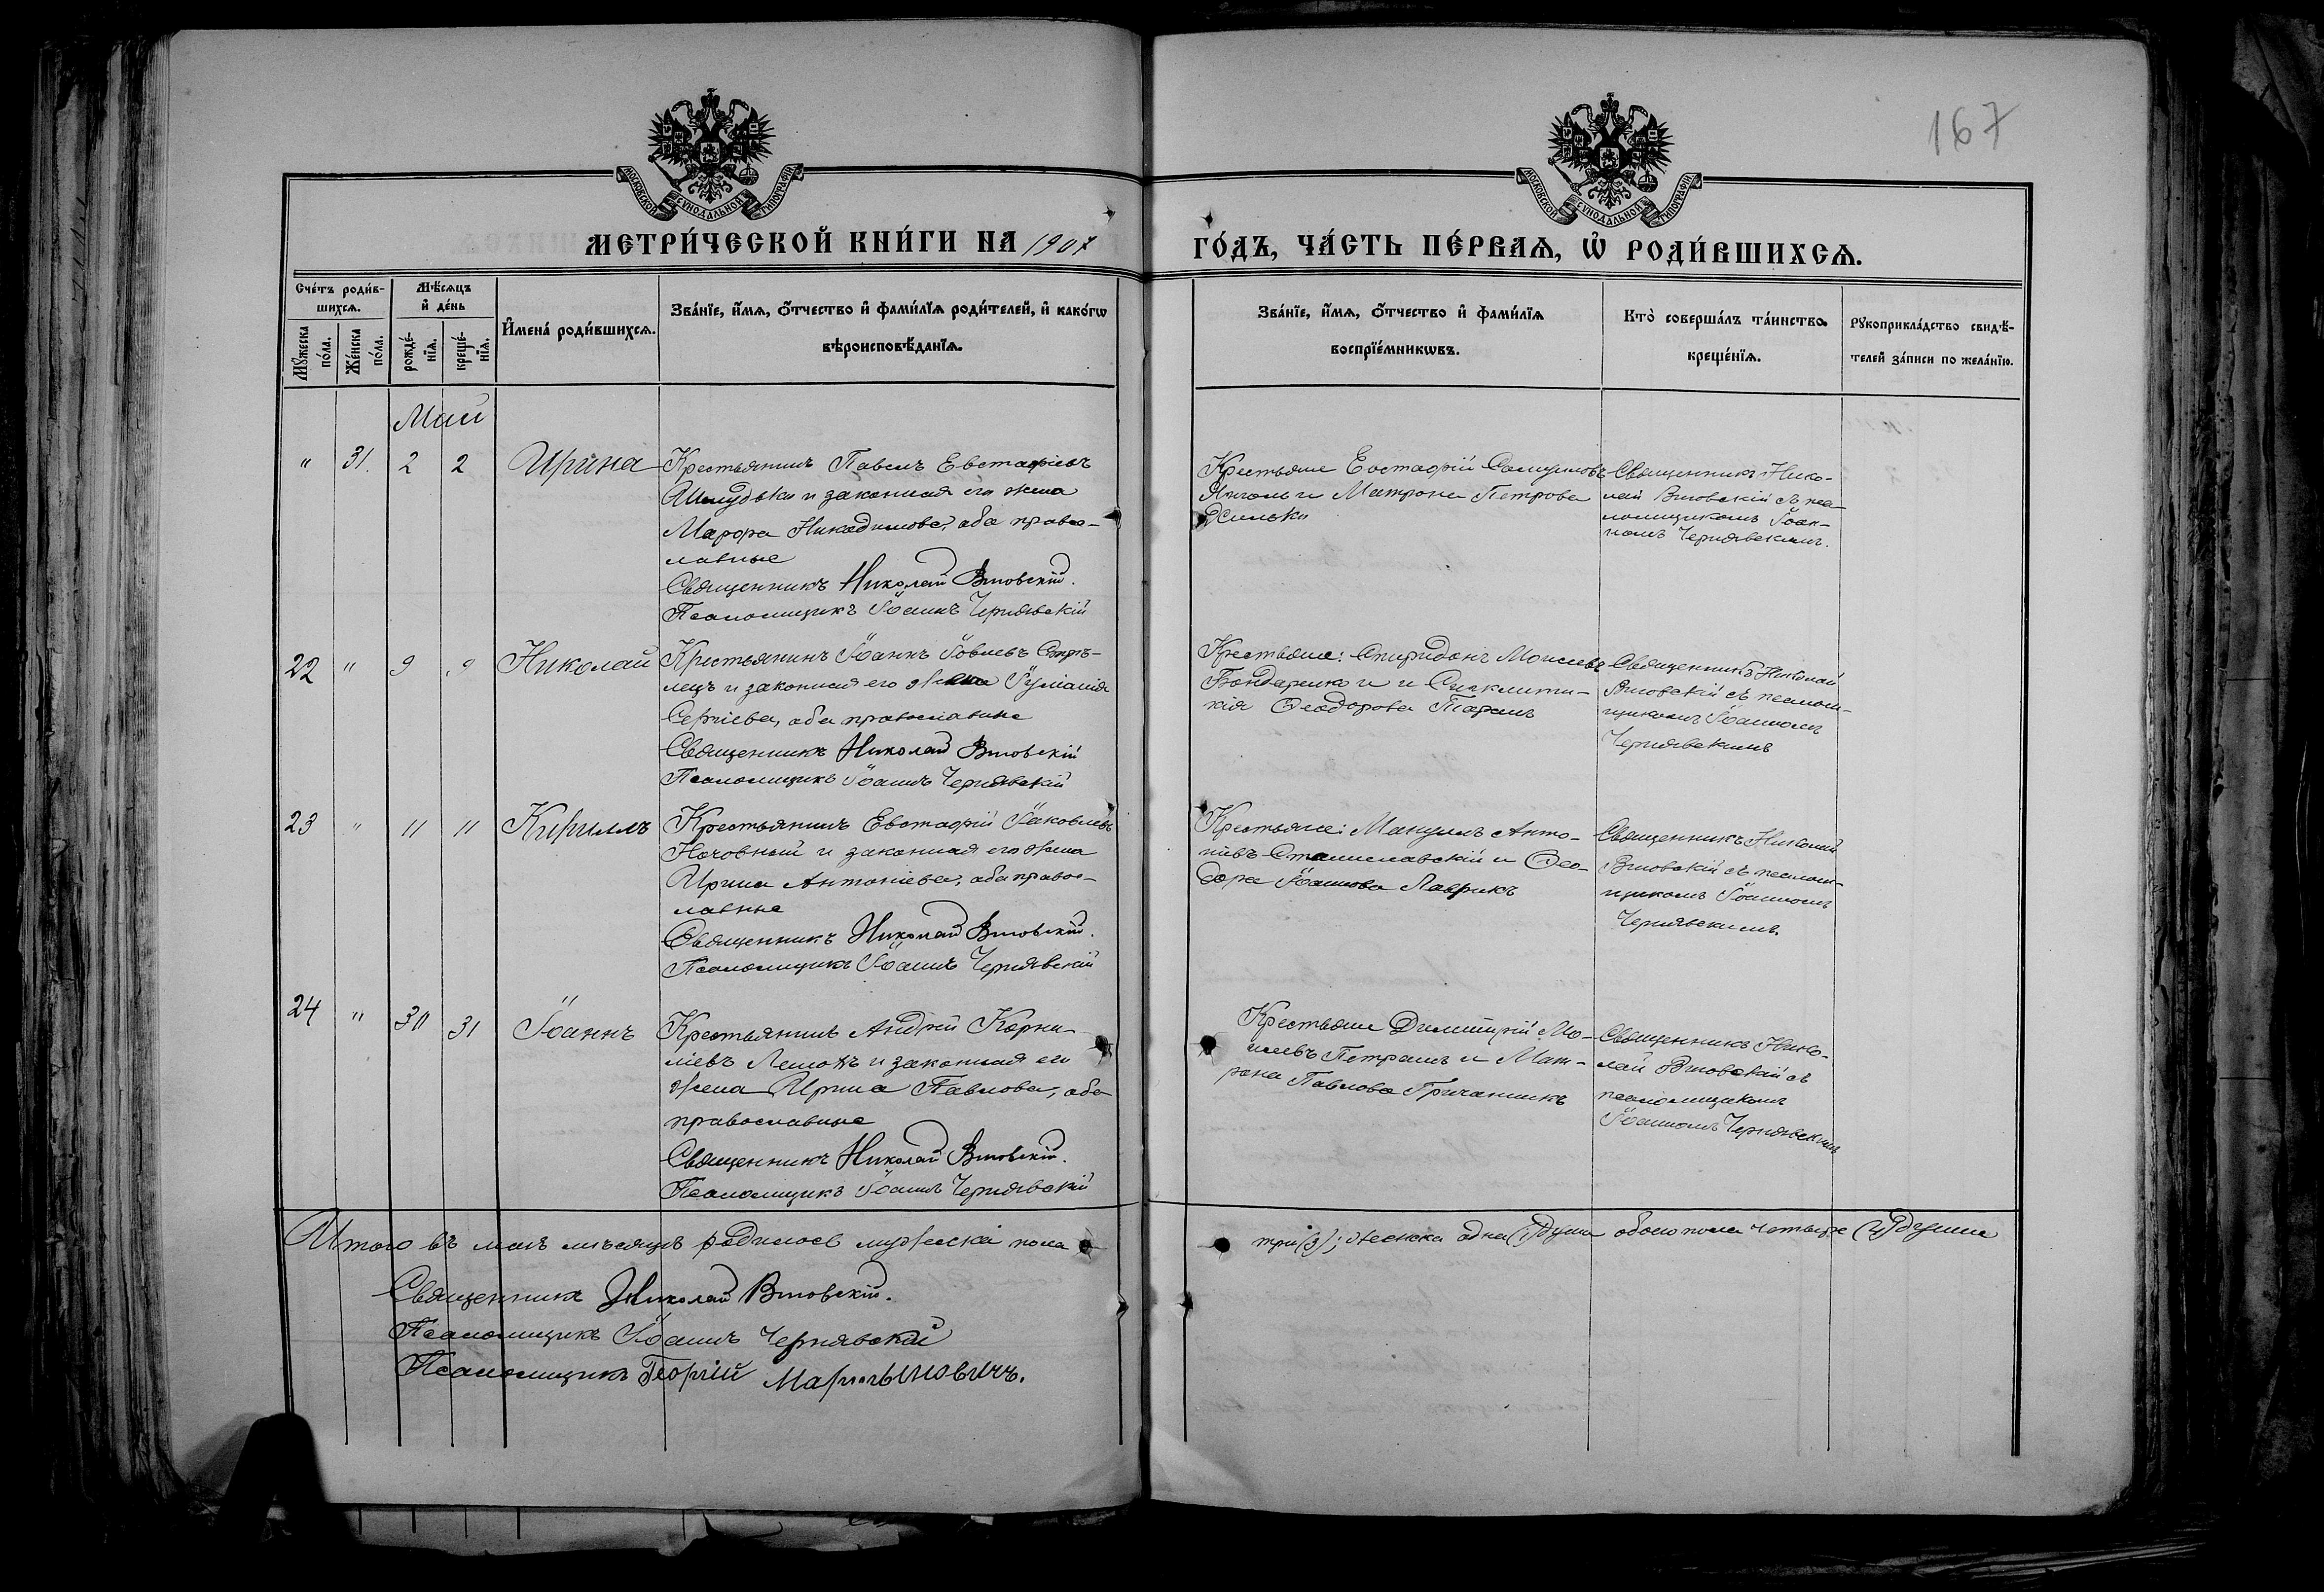 167
МОСКОВСКОЙ СУНОДАЛЬНОЙ ТИПОГРАФІИ
МОСКОВСКОЙ СУНОДАЛЬНОЙ ТИПОГРАФІИ
МЕТРИ́ЧЕСКОЙ КНИ́ГИ НА 1907
ГО́ДЪ, ЧА́СТЬ ПЕ́РВАѦ, Ѡ҆ РОДИ́ВШИХСѦ.
Сче́тъ роди́в-
шихсѧ.
Мѣ́сѧцъ
и҆ де́нь
Мꙋ́жеска
по́ла.
Же́нска
по́ла.
рожде́-
нїѧ.
креще́-
нїѧ.
И҆мена̀ роди́вшихсѧ.
Зва́нїе, и҆́мѧ, ѻ҆́тчество и҆ фами́лїѧ роди́телей, и҆ како́гѡ
вѣроисповѣ́данїѧ.
Зва́нїе, и҆́мѧ, ѻ҆́тчество и҆ фами́лїѧ
воспрїе́мникѡвъ.
Кто̀ соверша́лъ та́инство
креще́нїѧ.
Рꙋкоприкла́дство свидѣ́-
телей за́писи по жела́нїю.
Май
" 31. 2 2 Ирина
Крестьянинъ Павелъ Евстафіевъ
и законная его жена
Марѳа Никодимова, оба право-
славные
Священникъ Николай
Псаломщикъ Іоаннъ Чернявскій
Крестьяне Евстафій
и Матрона Петрова
Священникъ Нико-
лай съ пса-
ломщикомъ Іоан-
номъ Чернявскимъ.
22 " 9 9 Николай
Крестьянинъ Іоаннъ Іовлевъ Стрѣ-
лецъ и законная его жена Іуліанія
Сергіева, оба православные
Священникъ Николай
Псаломщикъ Іоаннъ Чернявскій
Крестьяне: Спиридонъ Моисеевъ
Бондаренко и Синклити-
кія Ѳеодорова Таранъ
Священникъ Николай
съ псалом-
щикомъ Іоанномъ
Чернявскимъ
23 " 11 11 Кириллъ
Крестьянинъ Евстафій Іаковлевъ
Ночовный и законная его жена
Ирина Антоніева, оба право-
славные
Священникъ Николай
Псаломщикъ Іоаннъ Чернявскій
Крестьяне: Мануилъ Анто-
ніевъ Станиславскій и Ѳео-
дора Іоаннова Лаврикъ
Священникъ Николай
съ псалом-
щикомъ Іоанномъ
Чернявскимъ.
24 " 30 31 Іоаннъ
Крестьянинъ Андрей Корни-
ліевъ и законная его
жена Ирина Павлова, оба
православные
Священникъ Николай
Псаломщикъ Іоаннъ Чернявскій
Крестьяне Димитрій Мо-
исеевъ и Мат-
рона Павлова Гричаникъ
Священникъ Нико-
лай съ
псаломщикомъ
Іоанномъ Чернявскимъ
Итого въ маѣ мѣсяцѣ родилось мужеска пола
три (3); женска одна (1) душа обоего пола четыре (4) души
Священникъ Николай
Псаломщикъ Іоаннъ Чернявскій
Псаломщикъ Георгій Мартыновичъ.